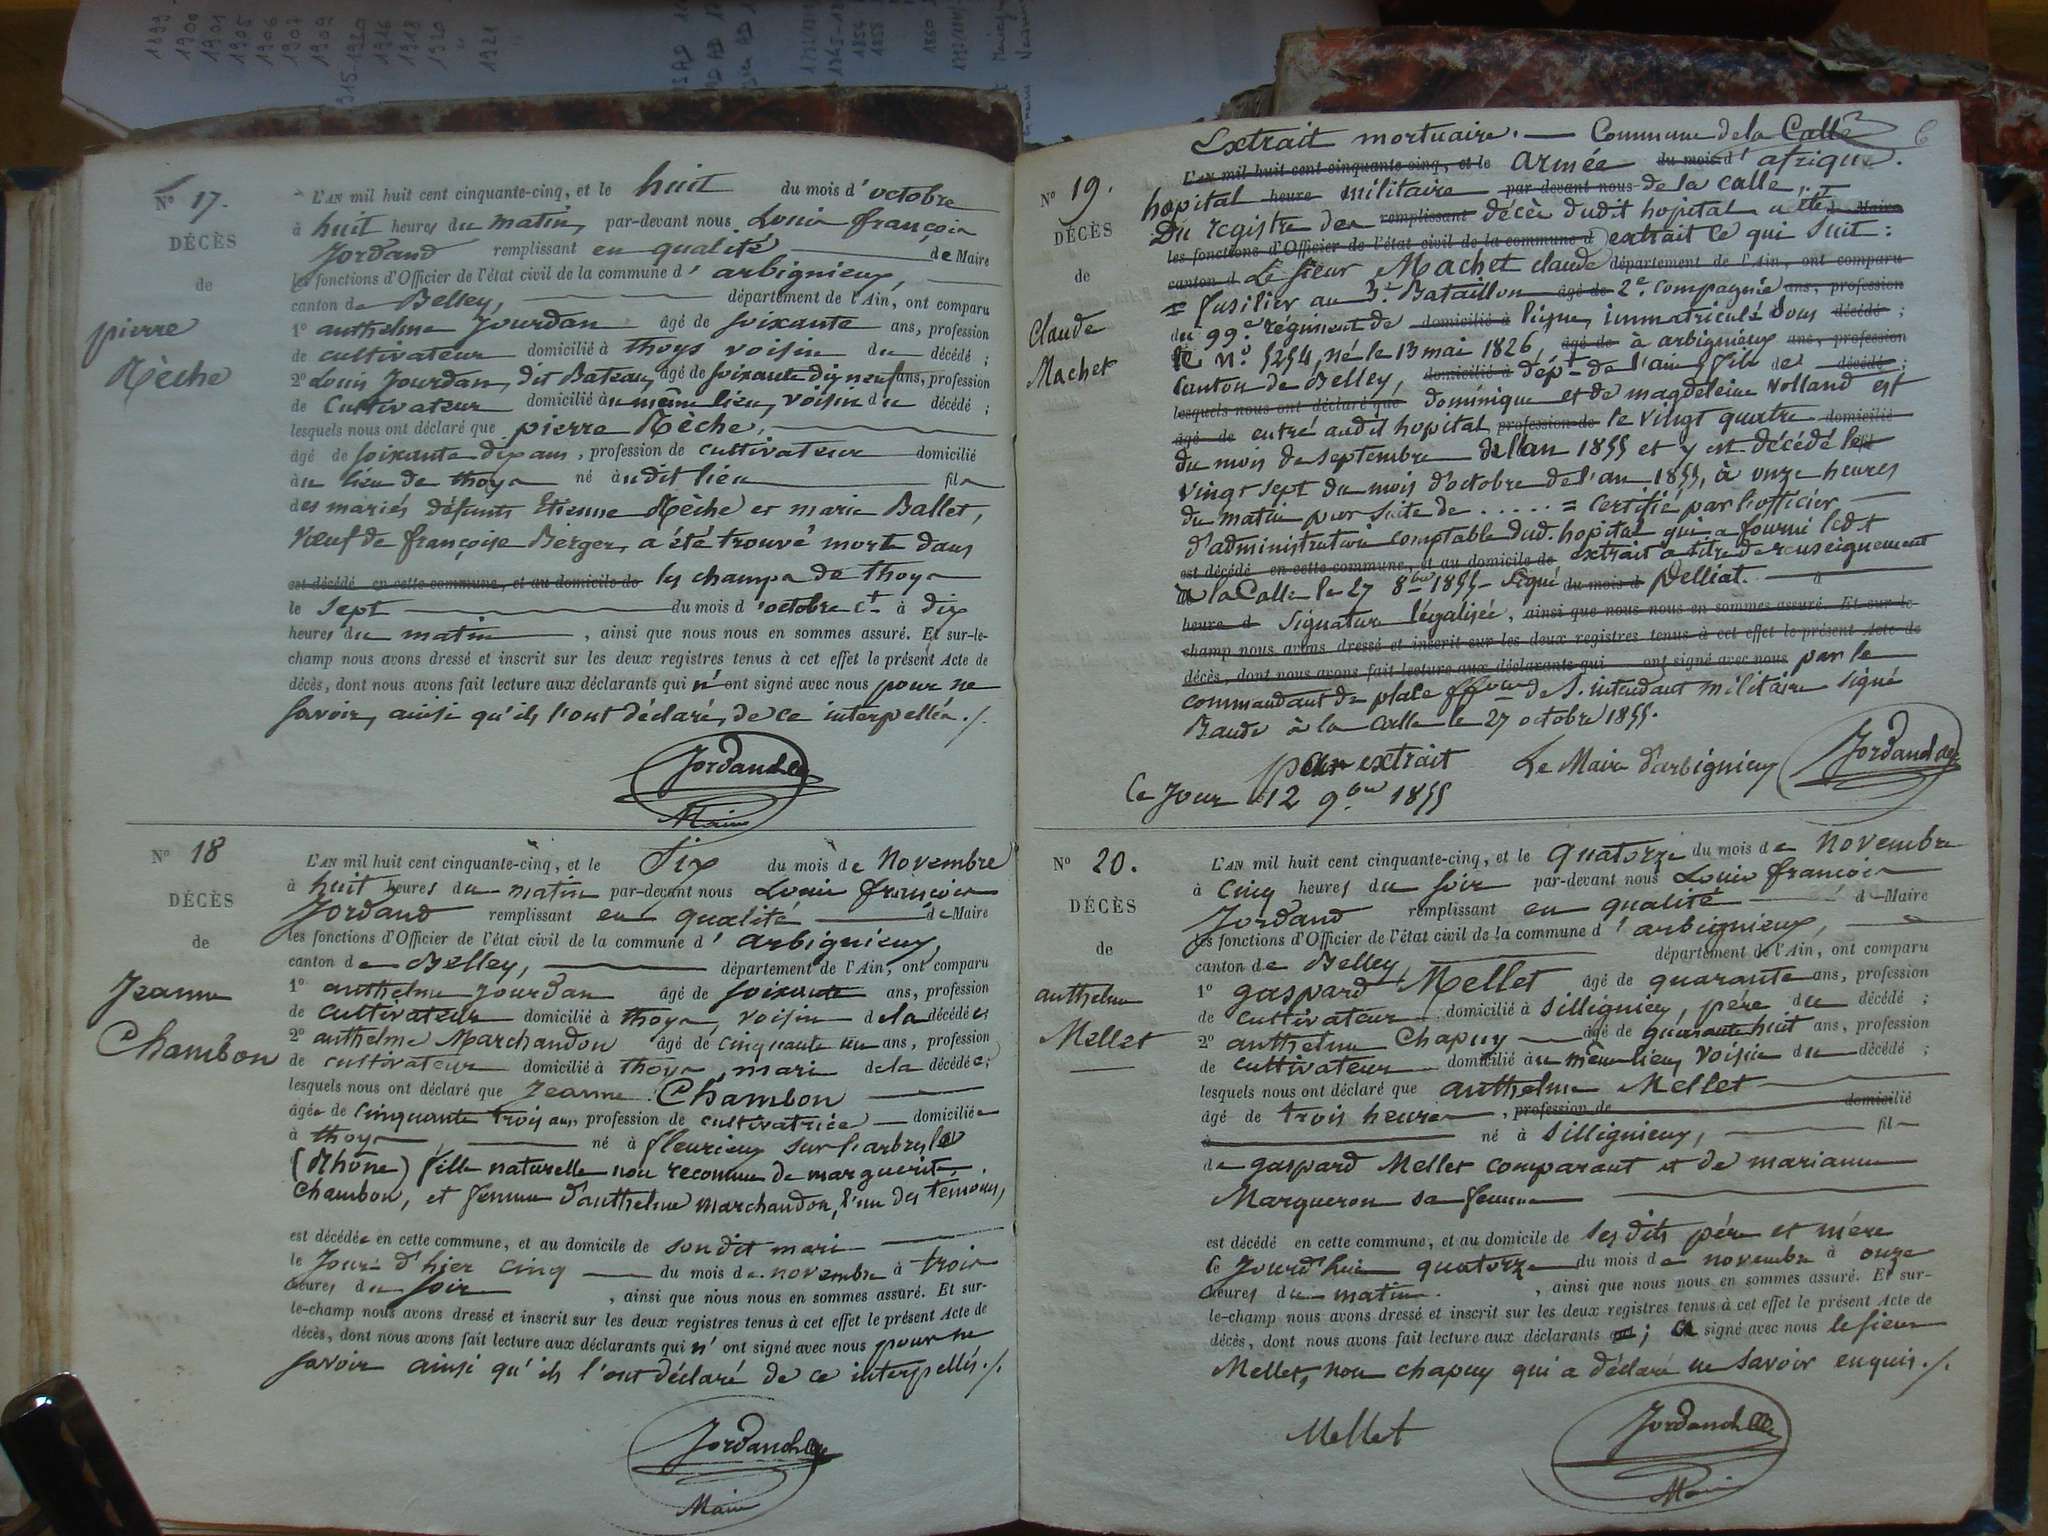 1899
1900
1901
1905
1906
1907
1909
1915-1920
1916
1918
1920
1921
N° 17.
DÉCÈS
de
pierre
Rèche
L'AN mil huit cent cinquante-cinq, et le huit du mois d'octobre
à huit heures du matin, par-devant nous Louis françois
Jordand remplissant en qualité de Maire
les fonctions d'Officier de l'état civil de la commune d'arbignieux,
canton de Belley, département de l'Ain, ont comparu
1° anthelme Jourdan âgé de soixante ans, profession
de cultivateur domicilié à thoys voisin du décédé ;
2° Louis Jourdan, dit Bateau, âgé de soixante dix neuf ans, profession
de cultivateur domicilié au même lieu, voisin du décédé ;
lesquels nous ont déclaré que pierre Rèche,
âgé de soixante dix ans, profession de cultivateur domicilié
au lieu de thoys né audit lieu fils
des mariés défunts Etienne Rèche et marie Ballet,
veuf de françoise Berger, a été trouvé mort dans
est décédé en cette commune, et au domicile de les champs de thoys
le sept du mois d'octobre ct à dix
heures du matin, ainsi que nous nous en sommes assuré. Et sur-le-
champ nous avons dressé et inscrit sur les deux registres tenus à cet effet le présent Acte de
décès, dont nous avons fait lecture aux déclarants qui n'ont signé avec nous pour ne
savoir, ainsi qu'ils l'ont déclaré, de ce interpellés./.
Jordand
Maire
N° 18
DÉCÈS
de
Jeanne
Chambon
L'AN mil huit cent cinquante-cinq, et le Six du mois de novembre
à huit heures du matin par-devant nous Louis françois
Jordand remplissant en qualité de Maire
les fonctions d'Officier de l'état civil de la commune d'arbignieux,
canton de Belley, département de l'Ain, ont comparu
1° anthelme Jourdan âgé de soixante ans, profession
de cultivateur domicilié à thoys, voisin de la décédée ;
2° anthelme Marchandon âgé de cinquante un ans, profession
de cultivateur domicilié à thoys, mari de la décédée ;
lesquels nous ont déclaré que Jeanne Chambon
âgée de cinquante trois ans, profession de cultivatrice domiciliée
à thoys, né à fleurieux sur l'arbresle
(Rhône) fille naturelle non reconnue de marguerite
Chambon, et femme d'anthelme marchandon, l'un des témoins,
est décédée en cette commune, et au domicile de son dit mari
le Jour d'hier cinq du mois de novembre à trois
heures du soir, ainsi que nous nous en sommes assuré. Et sur-
le-champ nous avons dressé et inscrit sur les deux registres tenus à cet effet le présent Acte de
décès, dont nous avons fait lecture aux déclarants qui n'ont signé avec nous pour ne
savoir ainsi qu'ils l'ont déclaré de ce interpellés./.
Jordand
Maire
6
Extrait mortuaire. — Commune de la Calle
N° 19.
DÉCÈS
de
Claude
Machet
L'AN mil huit cent cinquante-cinq, et le armée du mois d'afrique.
hopital heure militaire par-devant nous de la calle.
Du registre des remplissant décès dudit hopital a été Maire
les fonctions d'Officier de l'état civil de la commune d extrait ce qui suit :
canton d Le sieur Machet claude département de l'Ain, ont comparu
= fusilier au 3e Bataillon âgé de 2e compagnie ans, profession
du 99e régiment de domicilié à ligne, immatriculé sous décédé ;
le n° 5254, né le 13 mai 1826, âgé de à arbignieux ans, profession
canton de Belley, domicilié à dépt de l'ain, fils de décédé ;
lesquels nous ont déclaré que dominique et de magdeleine Volland est
âgé de entré audit hopital profession de le vingt quatre domicilié
du mois de septembre de l'an 1855 et y est décédé le
vingt sept du mois d'octobre de l'an 1855, à onze heures
du matin par suite de ..... = certifié par l'officier
d'administration comptable dud. hopital qui a fourni led.t
est décédé en cette commune, et au domicile de extrait à titre de renseignement
à la Calle le 27 8bre 1855 signé du mois d Pelliat. à
heure d Signature légalisée, ainsi que nous nous en sommes assuré. Et sur-le-
champ nous avons dressé et inscrit sur les deux registres tenus à cet effet le présent Acte de
décès, dont nous avons fait lecture aux déclarants qui ont signé avec nous par le
commandant de place ffons de S. intendant militaire signé
Baude à la Calle le 27 octobre 1855.
par extrait Le Maire d'arbignieux Jordand
Ce Jour 12 9bre 1855
N° 20.
DÉCÈS
de
anthelme
Mellet
L'AN mil huit cent cinquante-cinq, et le quatorze du mois de novembre
à cinq heures du soir par-devant nous Louis françois
Jordand remplissant en qualité de Maire
les fonctions d'Officier de l'état civil de la commune d'arbignieux,
canton de Belley département de l'Ain, ont comparu
1° gaspard Mellet âgé de quarante ans, profession
de cultivateur domicilié à Sillignieu, père du décédé ;
2° anthelme Chapuy âgé de quarante huit ans, profession
de cultivateur domicilié au même lieu, voisin du décédé ;
lesquels nous ont déclaré que anthelme Mellet
âgé de trois heures, profession de domicilié
à né à Sillignieux, fils
de gaspard Mellet comparant et de marianne
Margueron sa femme
est décédé en cette commune, et au domicile de ses dits père et mère
le Jourd'hui quatorze du mois de novembre à onze
heures du matin, ainsi que nous nous en sommes assuré. Et sur-
le-champ nous avons dressé et inscrit sur les deux registres tenus à cet effet le présent Acte de
décès, dont nous avons fait lecture aux déclarants qui ; a signé avec nous le sieur
Mellet, non chapuy qui a déclaré ne savoir enquis./.
Mellet
Jordand
Maire